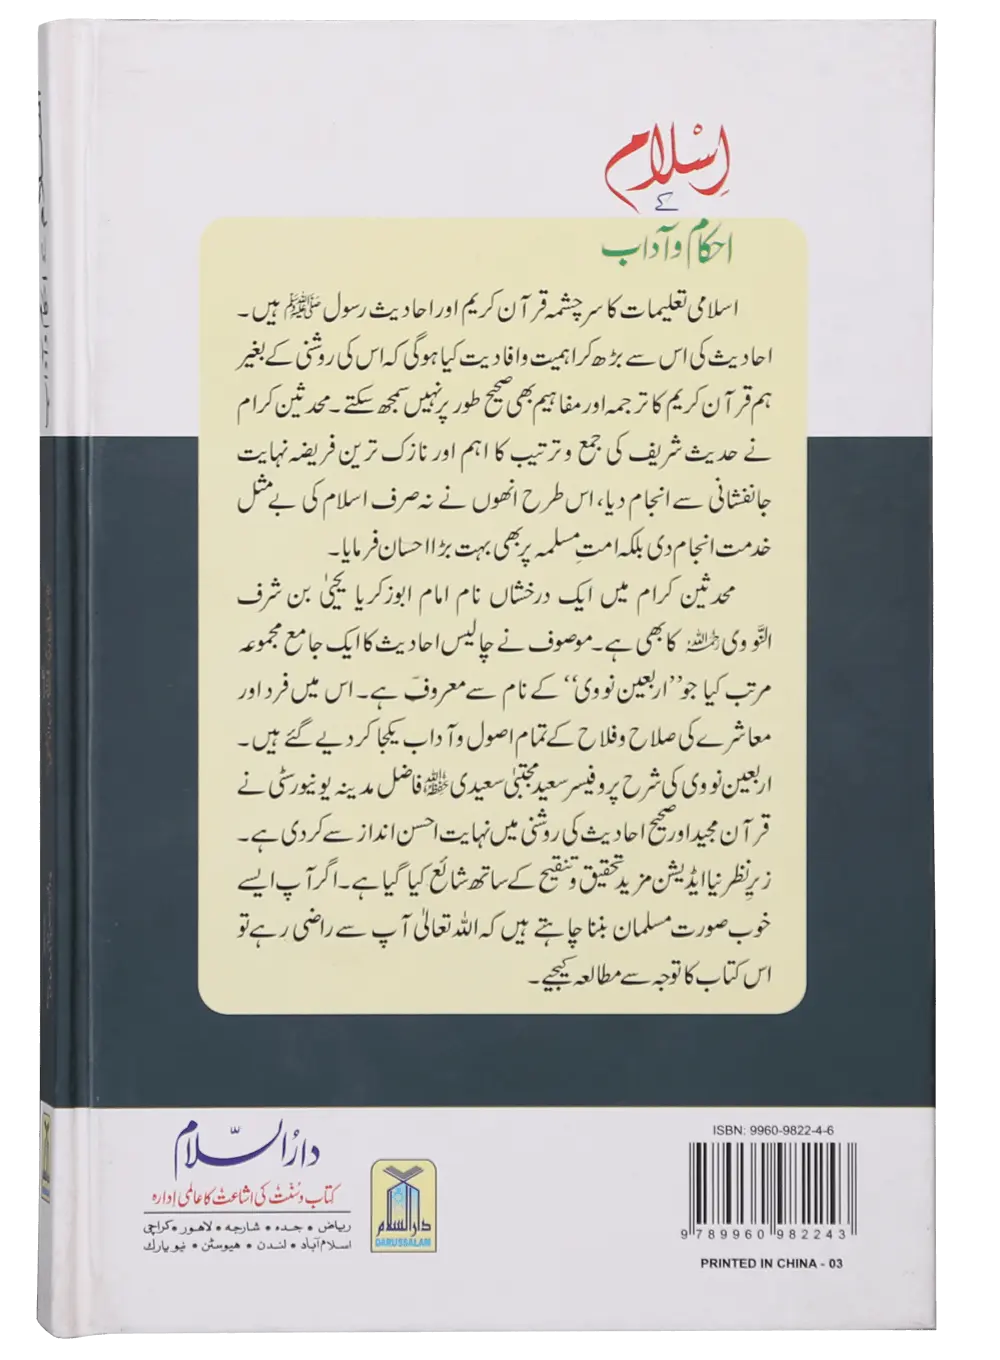 اسلام
کے
احکام و آداب
اسلامی تعلیمات کا سرچشمہ قرآن کریم اور احادیث رسول ﷺ ہیں۔
احادیث کی اس سے بڑھ کر اہمیت و افادیت کیا ہوگی کہ اس کی روشنی کے بغیر
ہم قرآن کریم کا ترجمہ اور مفاہیم بھی صحیح طور پر نہیں سمجھ سکتے۔ محدثین کرام
نے حدیث شریف کی جمع و ترتیب کا اہم اور نازک ترین فریضہ نہایت
جانفشانی سے انجام دیا، اس طرح انھوں نے نہ صرف اسلام کی بے مثل
خدمت انجام دی بلکہ امتِ مسلمہ پر بھی بہت بڑا احسان فرمایا۔
محدثین کرام میں ایک درخشاں نام امام ابو زکریا یحییٰ بن شرف
النَّووی رحمہ اللہ کا بھی ہے۔ موصوف نے چالیس احادیث کا ایک جامع مجموعہ
مرتب کیا جو ”اربعین نووی“ کے نام سے معروف ہے۔ اس میں فرد اور
معاشرے کی صلاح و فلاح کے تمام اصول و آداب یکجا کر دیے گئے ہیں۔
اربعین نووی کی شرح پروفیسر سعید مجتبیٰ سعیدی حفظہ اللہ فاضل مدینہ یونیورسٹی نے
قرآن مجید اور صحیح احادیث کی روشنی میں نہایت احسن انداز سے کر دی ہے۔
زیرِ نظر نیا ایڈیشن مزید تحقیق و تنقیح کے ساتھ شائع کیا گیا ہے۔ اگر آپ ایسے
خوب صورت مسلمان بننا چاہتے ہیں کہ اللہ تعالیٰ آپ سے راضی رہے تو
اس کتاب کا توجہ سے مطالعہ کیجیے۔
دارُالسلام
کتاب و سنت کی اشاعت کا عالمی ادارہ
ریاض • جدہ • شارجہ • لاہور • کراچی
اسلام آباد • لندن • ہیوسٹن • نیو یارک
دار السلام
DARUSSALAM
ISBN: 9960-9822-4-6
9 789960 982243
PRINTED IN CHINA - 03